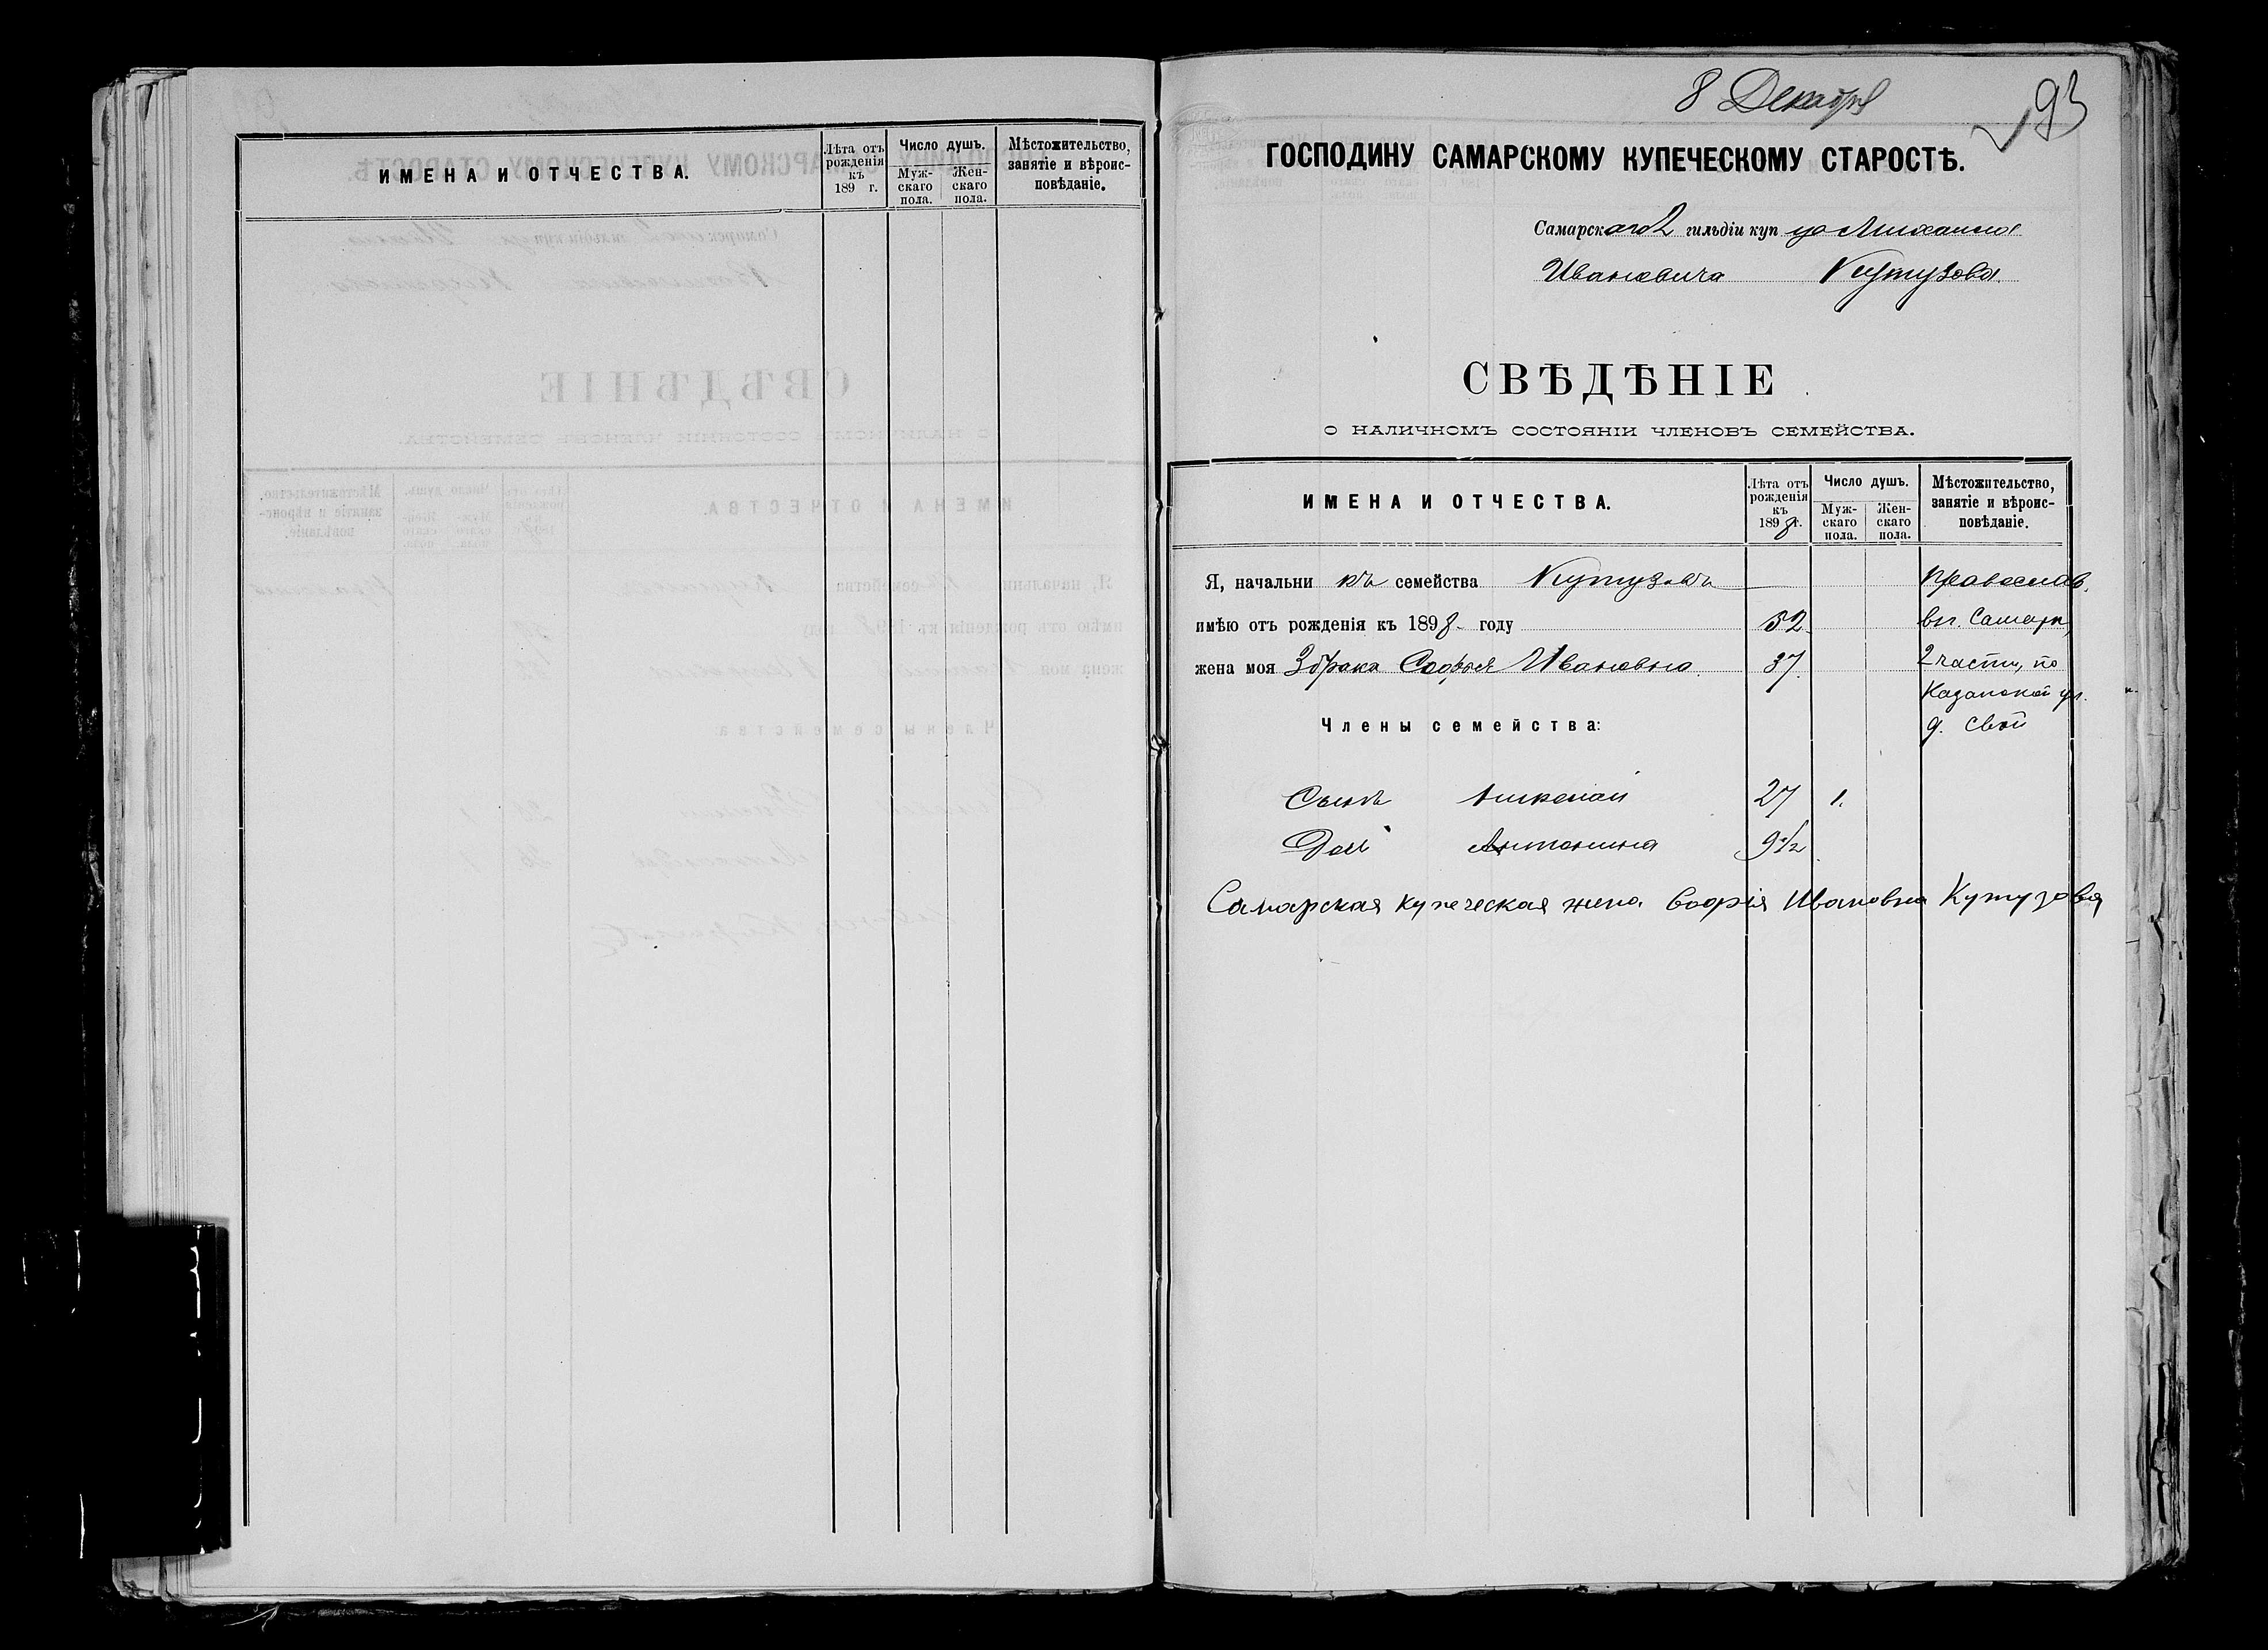 ИМЕНА И ОТЧЕСТВА.
Лѣта отъ рожденія къ 189 г.
Число душъ.
Мужскаго пола.
Женскаго пола.
Мѣстожительство, занятіе и вѣроисповѣданіе.
8 Декабря
93
ГОСПОДИНУ САМАРСКОМУ КУПЕЧЕСКОМУ СТАРОСТѢ.
Самарскаго 2 гильдіи купца Михаила
Ивановича Кутузова.
СВѢДѢНІЕ
О НАЛИЧНОМЪ СОСТОЯНІИ ЧЛЕНОВЪ СЕМЕЙСТВА.
ИМЕНА И ОТЧЕСТВА.
Лѣта отъ рожденія къ 1898 г.
Число душъ.
Мужскаго пола.
Женскаго пола.
Мѣстожительство, занятіе и вѣроисповѣданіе.
Я, начальникъ семейства Кутузовъ Православ.
имѣю отъ рожденія къ 1898 году 52 въ г. Самарѣ,
жена моя 3 брака Софья Ивановна 37 2 части, по
Казанской ул.
Члены семейства: д. свой
Сынъ Николай 27 1.
Дочь Антонина 9 1/2
Самарская купеческая жена Софія Ивановна Кутузова